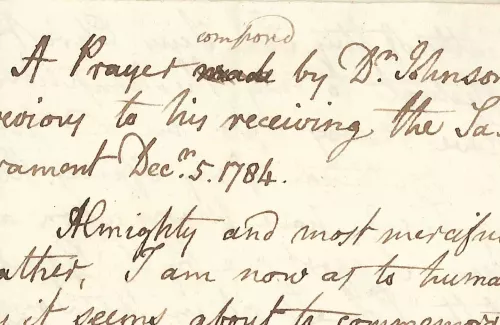 compond
A Prayer made by Dr. Johnson
revious to his receiving the Sa
rament Decr. 5. 1784.
Almighty and most mercifu
ather, I am now as to huma
it seems about to commemor